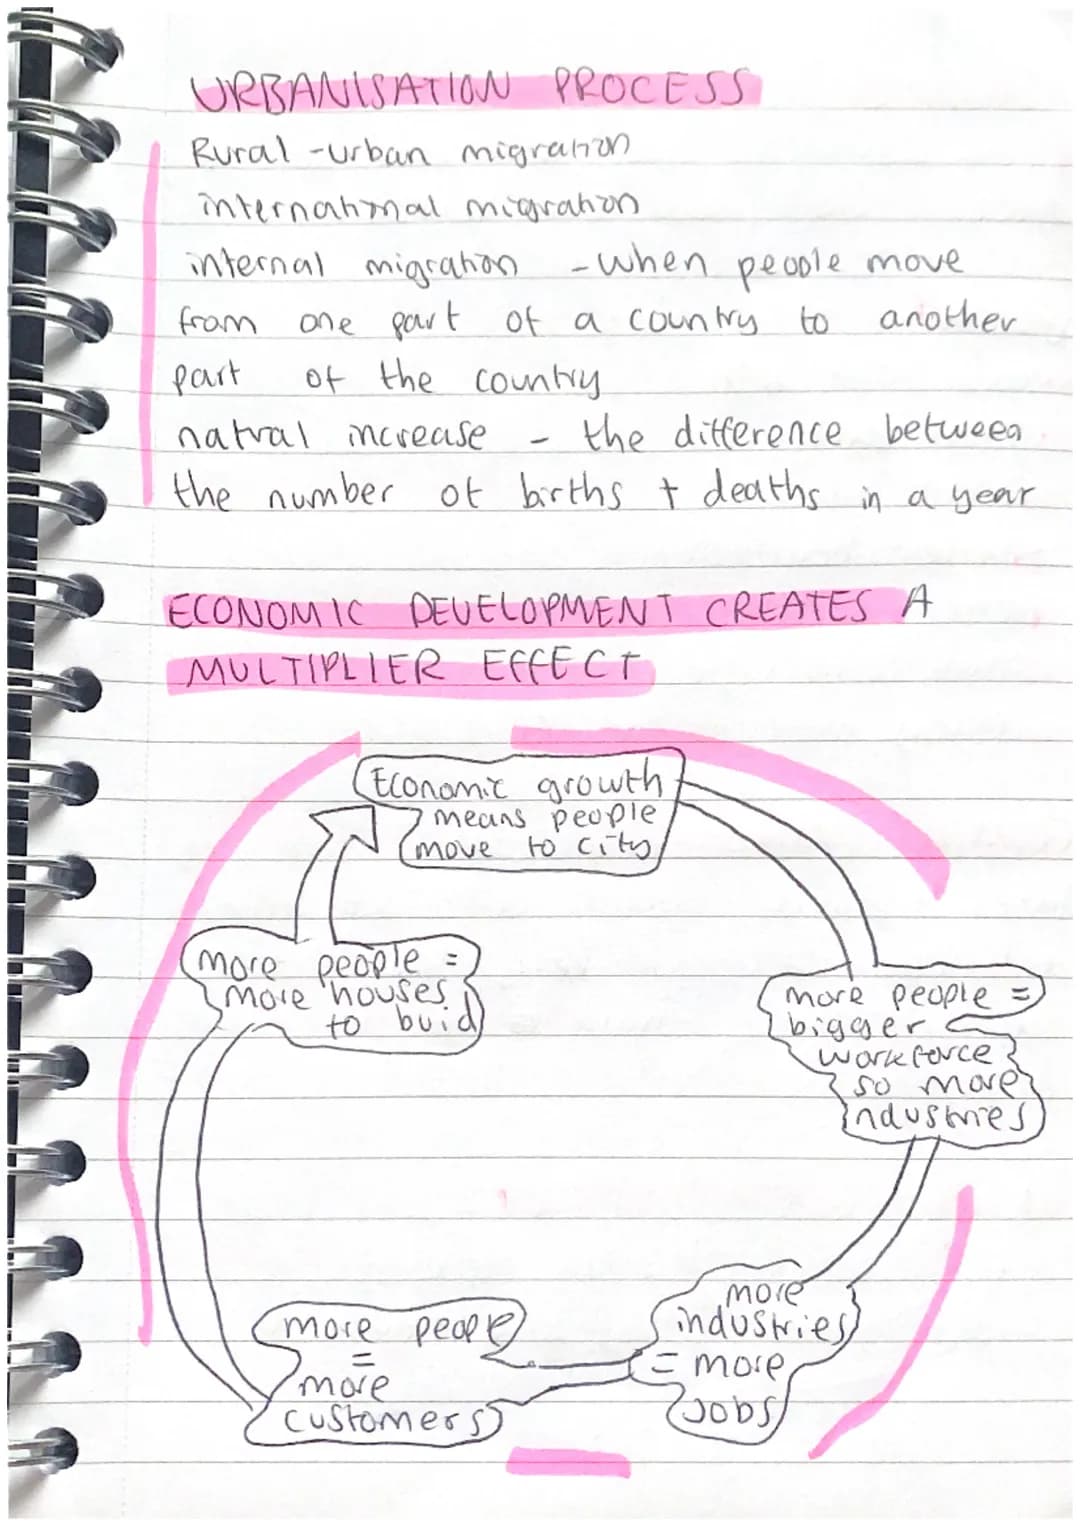 URBANISATION PROCESS
Rural-urban migration
international migration
internal migration - when people move
from one part of a country to another
part of the country
natral increase - the difference between
the number of births + deaths in a year
ECONOMIC DEVELOPMENT CREATES A
MULTIPLIER EFFECT
Economic growth
means people
move to city
more people =
bigger
workforce
so more
industries
more
industries
= more
jobs
more people
=
more
customers
more people =
more houses
to buid